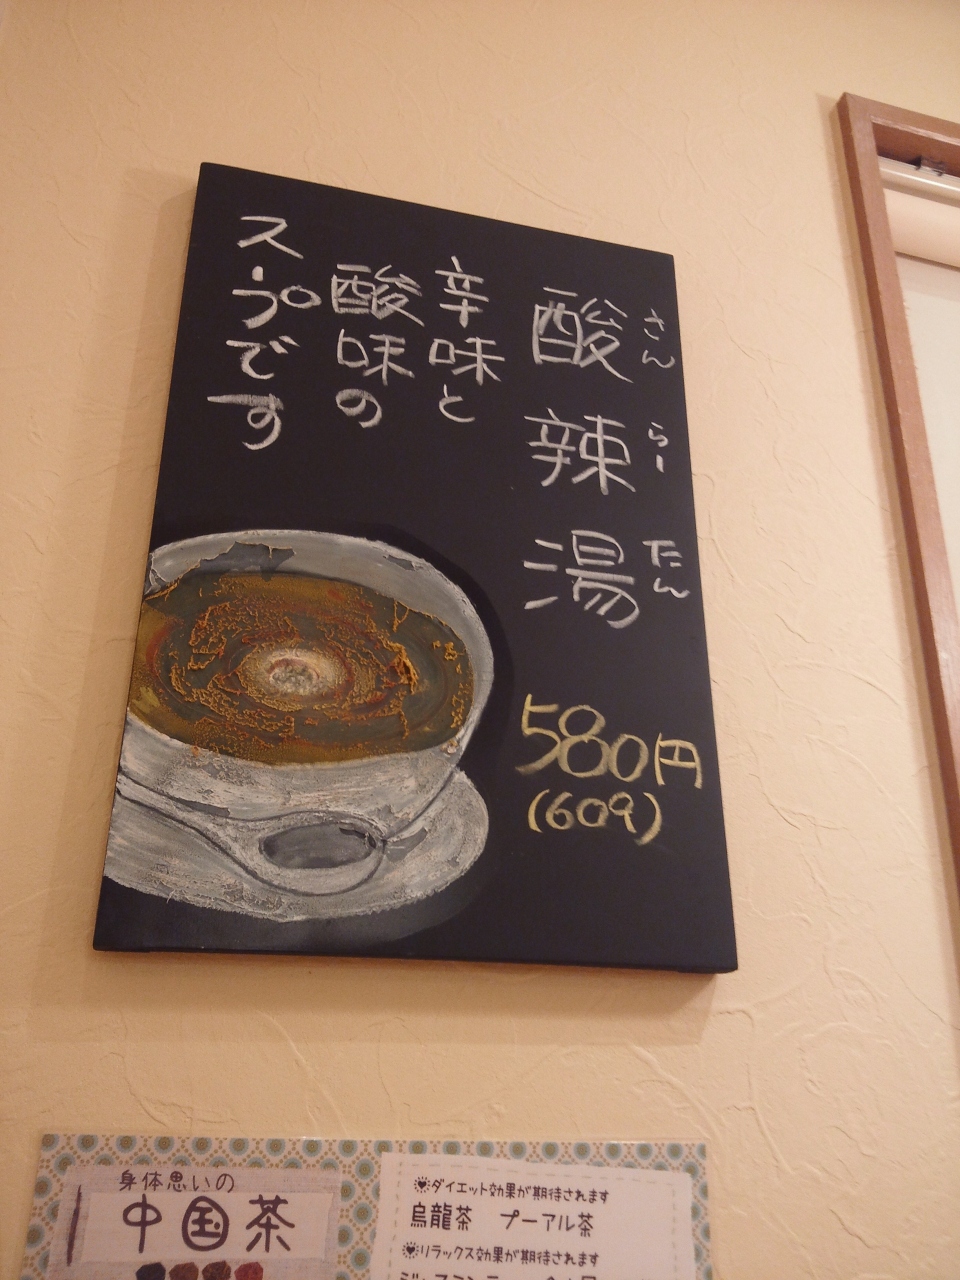 酸辣湯
さんらーたん
辛味と
酸味の
スープです
580円
(609)
身体思いの
中国茶
ダイエット効果が期待されます
烏龍茶　プーアル茶
リラックス効果が期待されます